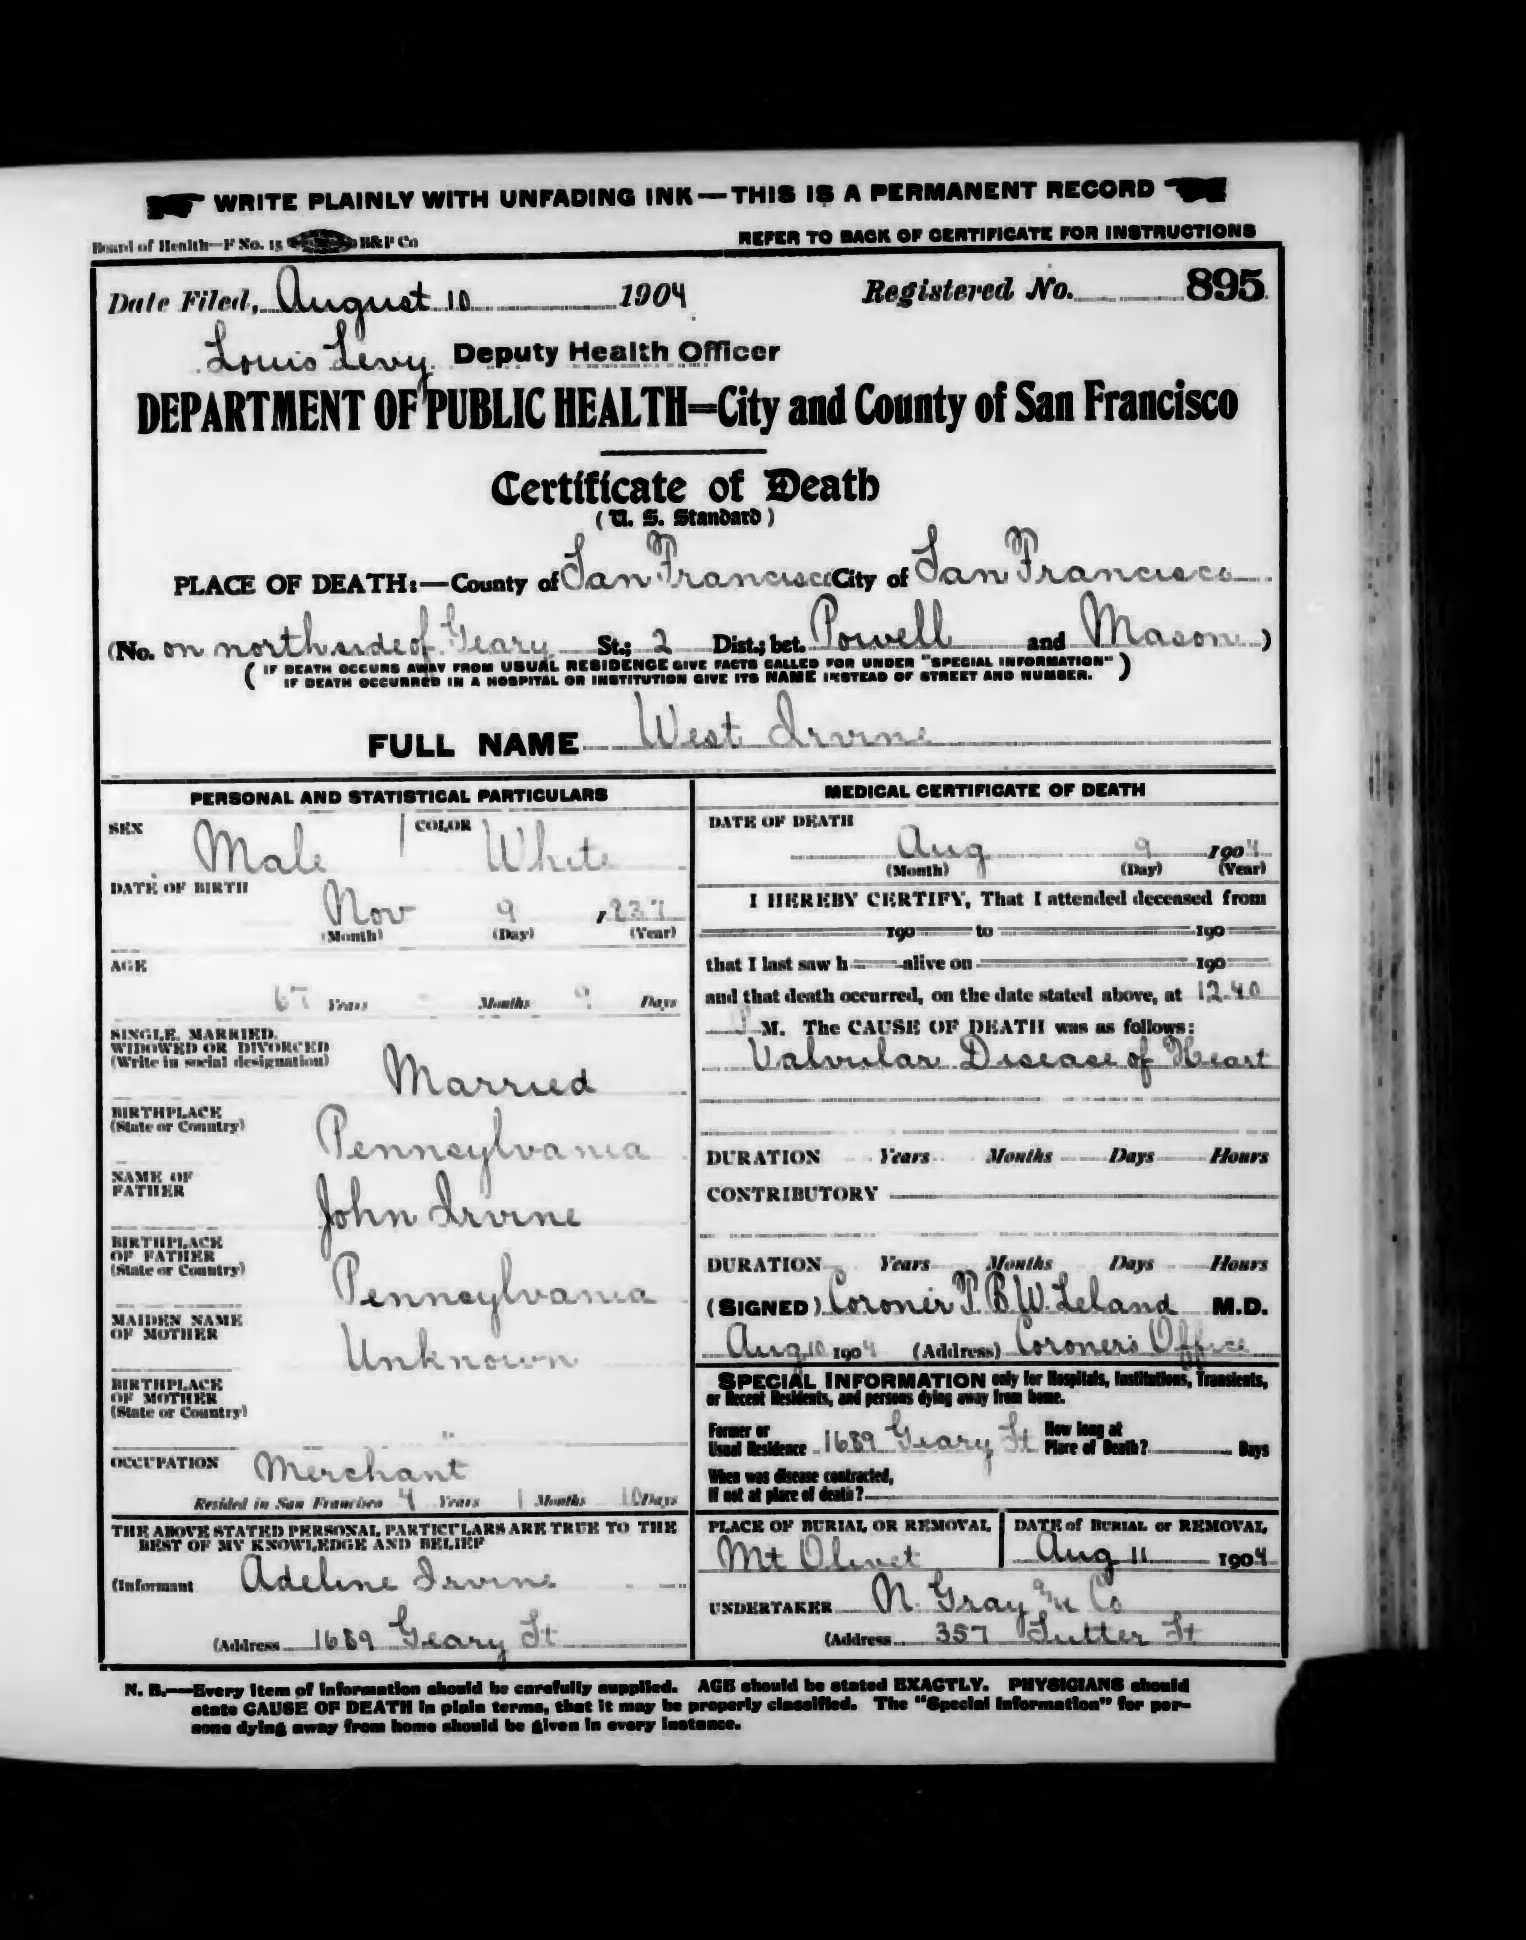 WRITE PLAINLY WITH UNFADING INK—THIS IS A PERMANENT RECORD
Board of Health—F No. 15 B&P Co REFER TO BACK OF CERTIFICATE FOR INSTRUCTIONS
Date Filed, August 10 1904 Registered No. 895
Louis Levy Deputy Health Officer
DEPARTMENT OF PUBLIC HEALTH=City and County of San Francisco
Certificate of Death
(U. S. Standard)
PLACE OF DEATH:—County of San Francisco City of San Francisco
(No. on north side of Geary St.; 2 Dist.; bet. Powell and Mason)
(IF DEATH OCCURS AWAY FROM USUAL RESIDENCE GIVE FACTS CALLED FOR UNDER "SPECIAL INFORMATION"
IF DEATH OCCURRED IN A HOSPITAL OR INSTITUTION GIVE ITS NAME INSTEAD OF STREET AND NUMBER.)
FULL NAME West Irvine
PERSONAL AND STATISTICAL PARTICULARS
SEX Male COLOR White
DATE OF BIRTH
Nov 9 , 837
(Month) (Day) (Year)
AGE
67 Years - Months 9 Days
SINGLE, MARRIED,
WIDOWED OR DIVORCED
(Write in social designation)
Married
BIRTHPLACE
(State or Country)
Pennsylvania
NAME OF
FATHER
John Irvine
BIRTHPLACE
OF FATHER
(State or Country)
Pennsylvania
MAIDEN NAME
OF MOTHER
Unknown
BIRTHPLACE
OF MOTHER
(State or Country)
"
OCCUPATION Merchant
Resided in San Francisco 4 Years 1 Months 10 Days
THE ABOVE STATED PERSONAL PARTICULARS ARE TRUE TO THE
BEST OF MY KNOWLEDGE AND BELIEF
(Informant Adeline Irvine
(Address 1689 Geary St
MEDICAL CERTIFICATE OF DEATH
DATE OF DEATH
Aug 9 1904
(Month) (Day) (Year)
I HEREBY CERTIFY, That I attended deceased from
190 to 190
that I last saw h alive on 190
and that death occurred, on the date stated above, at 12.40
M. The CAUSE OF DEATH was as follows:
Valvular Disease of Heart
DURATION Years Months Days Hours
CONTRIBUTORY
DURATION Years Months Days Hours
(SIGNED) Coroner T. B. W. Leland M.D.
Aug 10 1904 (Address) Coroner's Office
SPECIAL INFORMATION only for Hospitals, Institutions, Transients,
or Recent Residents, and persons dying away from home.
Former or
Usual Residence 1689 Geary St How long at
Place of Death? Days
When was disease contracted,
If not at place of death?
PLACE OF BURIAL OR REMOVAL DATE of BURIAL or REMOVAL
Mt Olivet Aug 11 1904
UNDERTAKER N. Gray & Co
(Address 357 Sutter St
N. B.—Every item of information should be carefully supplied. AGE should be stated EXACTLY. PHYSICIANS should
state CAUSE OF DEATH in plain terms, that it may be properly classified. The "Special Information" for per-
sons dying away from home should be given in every instance.